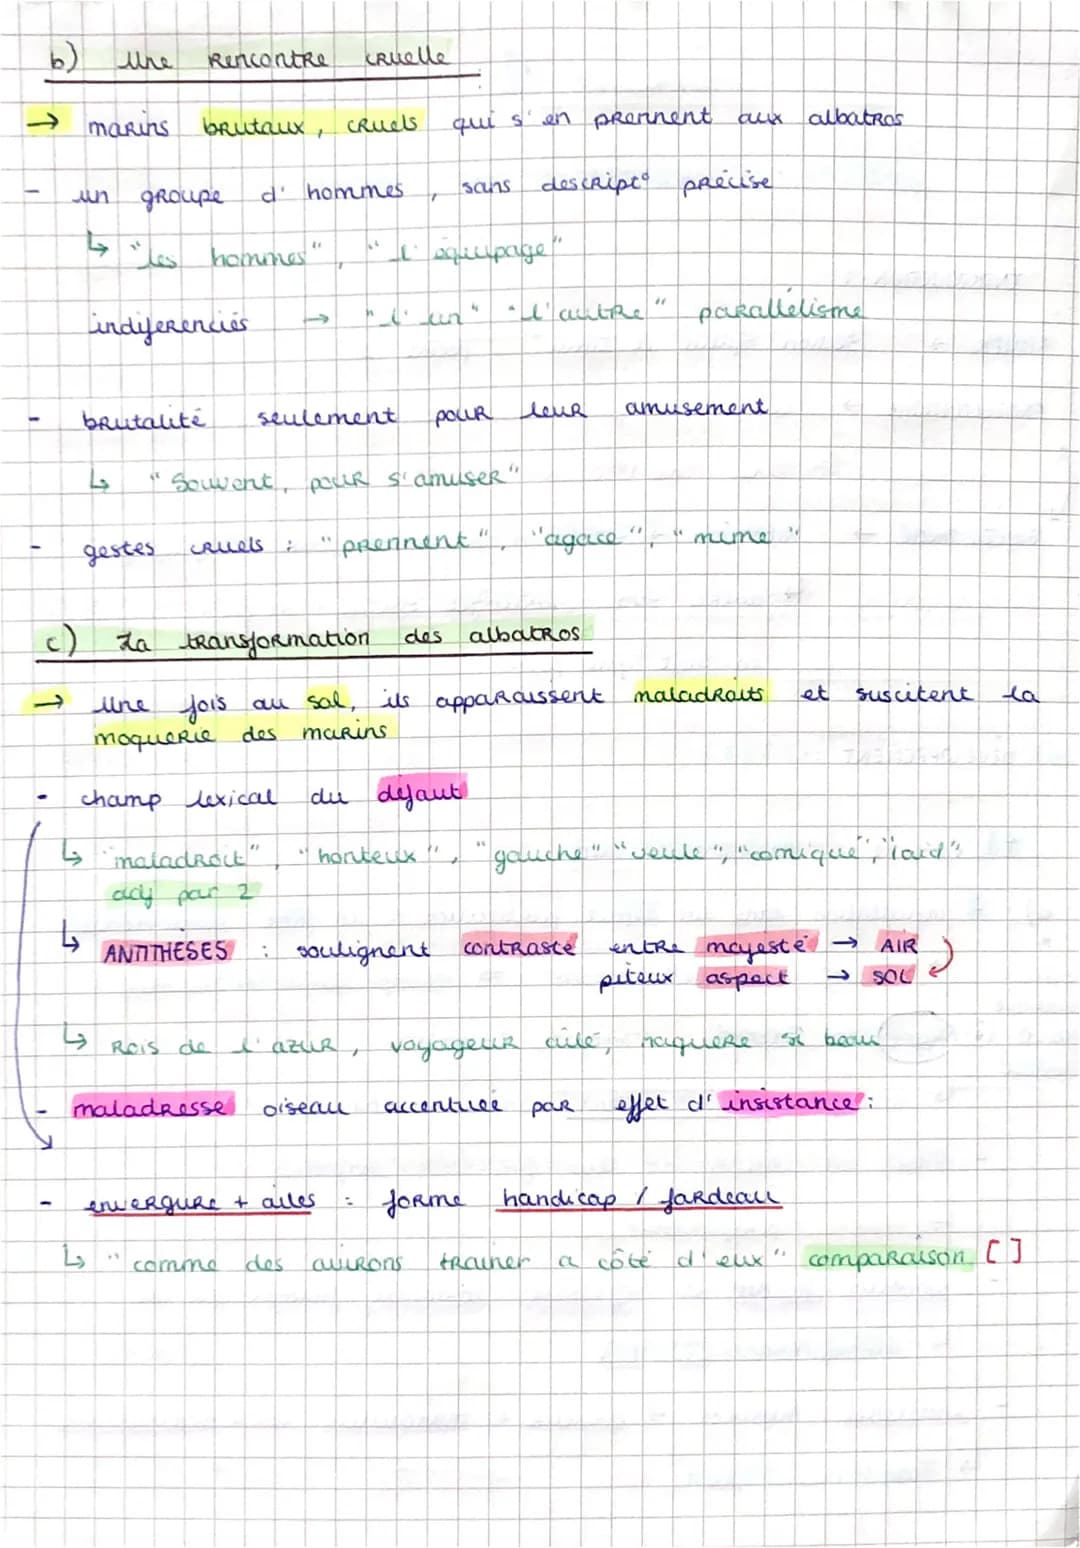 b) Une Rencontre cruelle
→ marins brutaux, cruels qui s'en prennent aux albatros
- un groupe d'hommes, sans descript° précise
↳ "les hommes", "l'équipage"
indiferenciés → "l'un" "l'autre" parallélisme
- brutalité seulement pour leur amusement
↳ "Souvent, pour s'amuser"
- gestes cruels : "prennent", "agace", "mime"
c) La transformation des albatros
→ Une fois au sol, ils apparaissent maladroits et suscitent la
moquerie des marins
- champ lexical du défaut
↳ "maladroit", "honteux", "gauche" "veule", "comique", "laid"
adj par 2
↳ ANTITHÈSES : soulignent contraste entre majesté → AIR
piteux aspect → SOL
↳ Rois de l'azur, voyageur ailé, naguere si beau
- maladresse oiseau accentuée par effet d'insistance :
- envergure + ailes = forme handicap / fardeau
↳ "comme des avirons trainer a côté d'eux" comparaison []